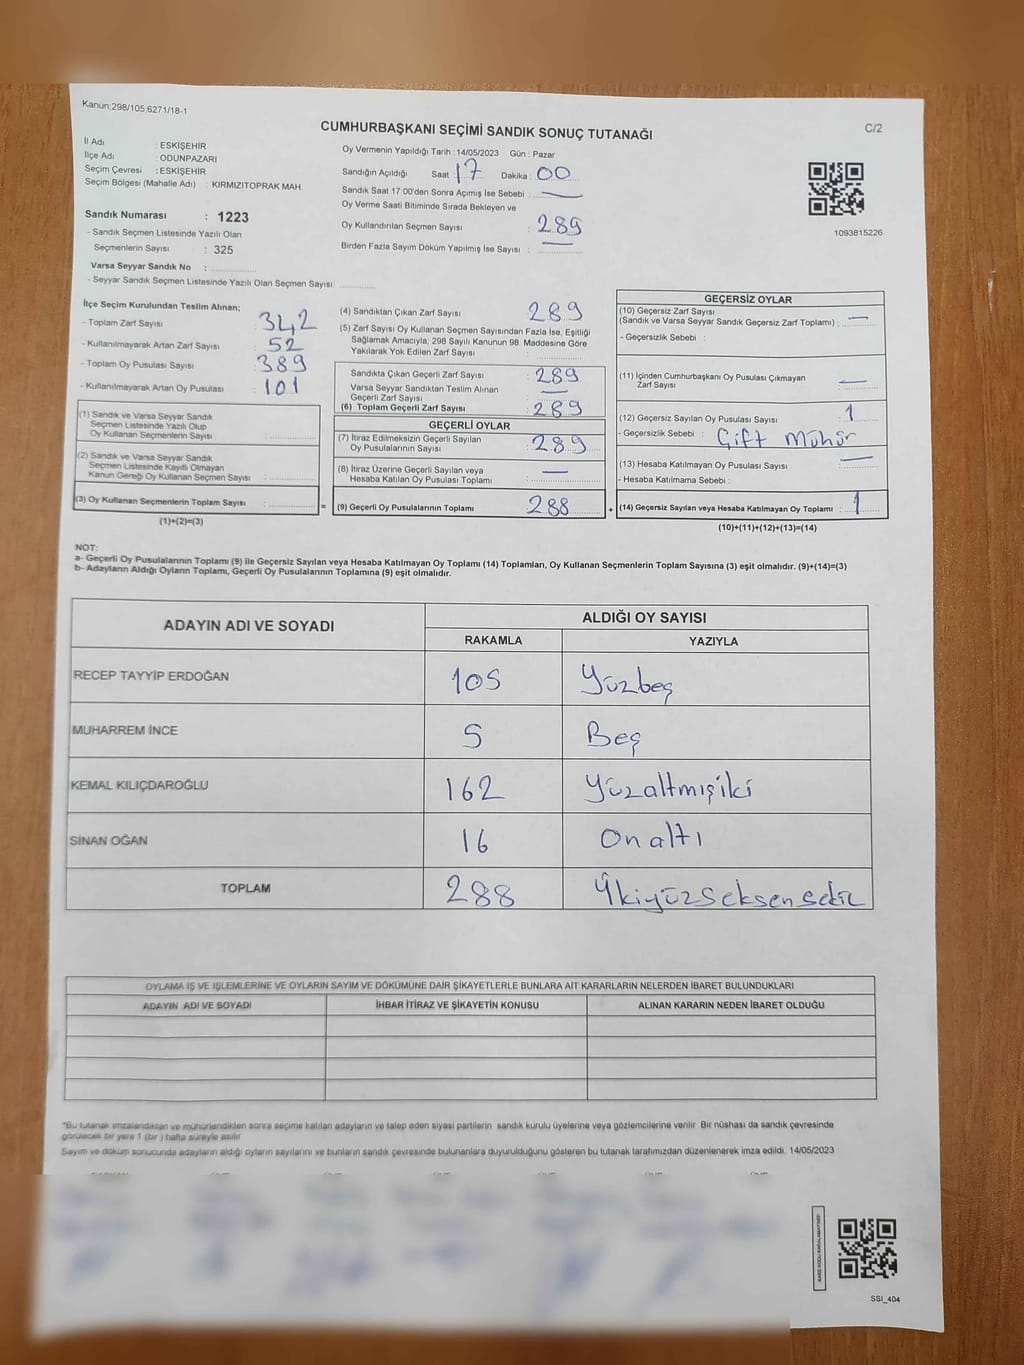 Kanun:298/105,6271/18-1
CUMHURBAŞKANI SEÇİMİ SANDIK SONUÇ TUTANAĞI
C/2
İl Adı : ESKİŞEHİR
İlçe Adı : ODUNPAZARI
Seçim Çevresi : ESKİŞEHİR
Seçim Bölgesi (Mahalle Adı) : KIRMIZITOPRAK MAH.
Sandık Numarası : 1223
- Sandık Seçmen Listesinde Yazılı Olan
Seçmenlerin Sayısı : 325
Varsa Seyyar Sandık No :
- Seyyar Sandık Seçmen Listesinde Yazılı Olan Seçmen Sayısı:
Oy Vermenin Yapıldığı Tarih :14/05/2023 Gün : Pazar
Sandığın Açıldığı Saat : 17 Dakika : 00
Sandık Saat 17:00'den Sonra Açımış İse Sebebi : —
Oy Verme Saati Bitiminde Sırada Bekleyen ve
Oy Kullandırılan Seçmen Sayısı : 289
Birden Fazla Sayım Döküm Yapılmış İse Sayısı : —
1093815226
İlçe Seçim Kurulundan Teslim Alınan;
- Toplam Zarf Sayısı 342
- Kullanılmayarak Artan Zarf Sayısı : 52
- Toplam Oy Pusulası Sayısı : 389
- Kullanılmayarak Artan Oy Pusulası : 101
(1) Sandık ve Varsa Seyyar Sandık
Seçmen Listesinde Yazılı Olup
Oy Kullanan Seçmenlerin Sayısı :
(2) Sandık ve Varsa Seyyar Sandık
Seçmen Listesinde Kayıtlı Olmayan
Kanun Gereği Oy Kullanan Seçmen Sayısı :
(3) Oy Kullanan Seçmenlerin Toplam Sayısı : =
(1)+(2)=(3)
(4) Sandıktan Çıkan Zarf Sayısı : 289
(5) Zarf Sayısı Oy Kullanan Seçmen Sayısından Fazla İse, Eşitliği
Sağlamak Amacıyla, 298 Sayılı Kanunun 98. Maddesine Göre
Yakılarak Yok Edilen Zarf Sayısı :
Sandıkta Çıkan Geçerli Zarf Sayısı : 289
Varsa Seyyar Sandıktan Teslim Alınan
Geçerli Zarf Sayısı : —
(6) Toplam Geçerli Zarf Sayısı : 289
GEÇERLİ OYLAR
(7) İtiraz Edilmeksizin Geçerli Sayılan
Oy Pusulalarının Sayısı : 289
(8) İtiraz Üzerine Geçerli Sayılan veya
Hesaba Katılan Oy Pusulası Toplamı : —
(9) Geçerli Oy Pusulalarının Toplamı : 288 +
GEÇERSİZ OYLAR
(10) Geçersiz Zarf Sayısı
(Sandık ve Varsa Seyyar Sandık Geçersiz Zarf Toplamı) : —
- Geçersizlik Sebebi :
(11) İçinden Cumhurbaşkanı Oy Pusulası Çıkmayan
Zarf Sayısı : —
(12) Geçersiz Sayılan Oy Pusulası Sayısı : 1
- Geçersizlik Sebebi : Çift Mühür
(13) Hesaba Katılmayan Oy Pusulası Sayısı : —
- Hesaba Katılmama Sebebi :
(14) Geçersiz Sayılan veya Hesaba Katılmayan Oy Toplamı : 1
(10)+(11)+(12)+(13)=(14)
NOT:
a- Geçerli Oy Pusulalarının Toplamı (9) ile Geçersiz Sayılan veya Hesaba Katılmayan Oy Toplamı (14) Toplamları, Oy Kullanan Seçmenlerin Toplam Sayısına (3) eşit olmalıdır. (9)+(14)=(3)
b- Adayların Aldığı Oyların Toplamı, Geçerli Oy Pusulalarının Toplamına (9) eşit olmalıdır.
ADAYIN ADI VE SOYADI
ALDIĞI OY SAYISI
RAKAMLA YAZIYLA
RECEP TAYYİP ERDOĞAN 105 Yüzbeş
MUHARREM İNCE 5 Beş
KEMAL KILIÇDAROĞLU 162 Yüzaltmışiki
SİNAN OĞAN 16 Onaltı
TOPLAM 288 İkiyüzseksensekiz
OYLAMA İŞ VE İŞLEMLERİNE VE OYLARIN SAYIM VE DÖKÜMÜNE DAİR ŞİKAYETLERLE BUNLARA AİT KARARLARIN NELERDEN İBARET BULUNDUKLARI
ADAYIN ADI VE SOYADI İHBAR İTİRAZ VE ŞİKAYETİN KONUSU ALINAN KARARIN NEDEN İBARET OLDUĞU
*Bu tutanak imzalandıktan ve mühürlendikten sonra seçime katılan adayların ve talep eden siyasi partilerin sandık kurulu üyelerine veya gözlemcilerine verilir. Bir nüshası da sandık çevresinde
görülecek bir yere 1 (bir ) hafta süreyle asılır
Sayım ve döküm sonucunda adayların aldığı oyların sayılarını ve bunların sandık çevresinde bulunanlara duyurulduğunu gösteren bu tutanak tarafımızdan düzenlenerek imza edildi. 14/05/2023
SSI_404